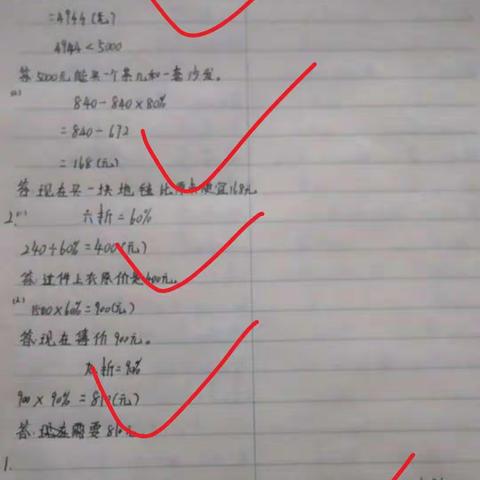 =4944(元)
4944<5000
答:5000元能买一个茶几和一套沙发。
(2)
840-840×80%
=840-672
=168(元)
答:现在买一块地毯比原来便宜168元
2.(1) 六折=60%
240÷60%=400(元)
答:这件上衣原价是400元。
(2) 1500×60%=900(元)
答:现在售价900元。
九折=90%
900×90%=810(元)
答:现在需要810元
1.